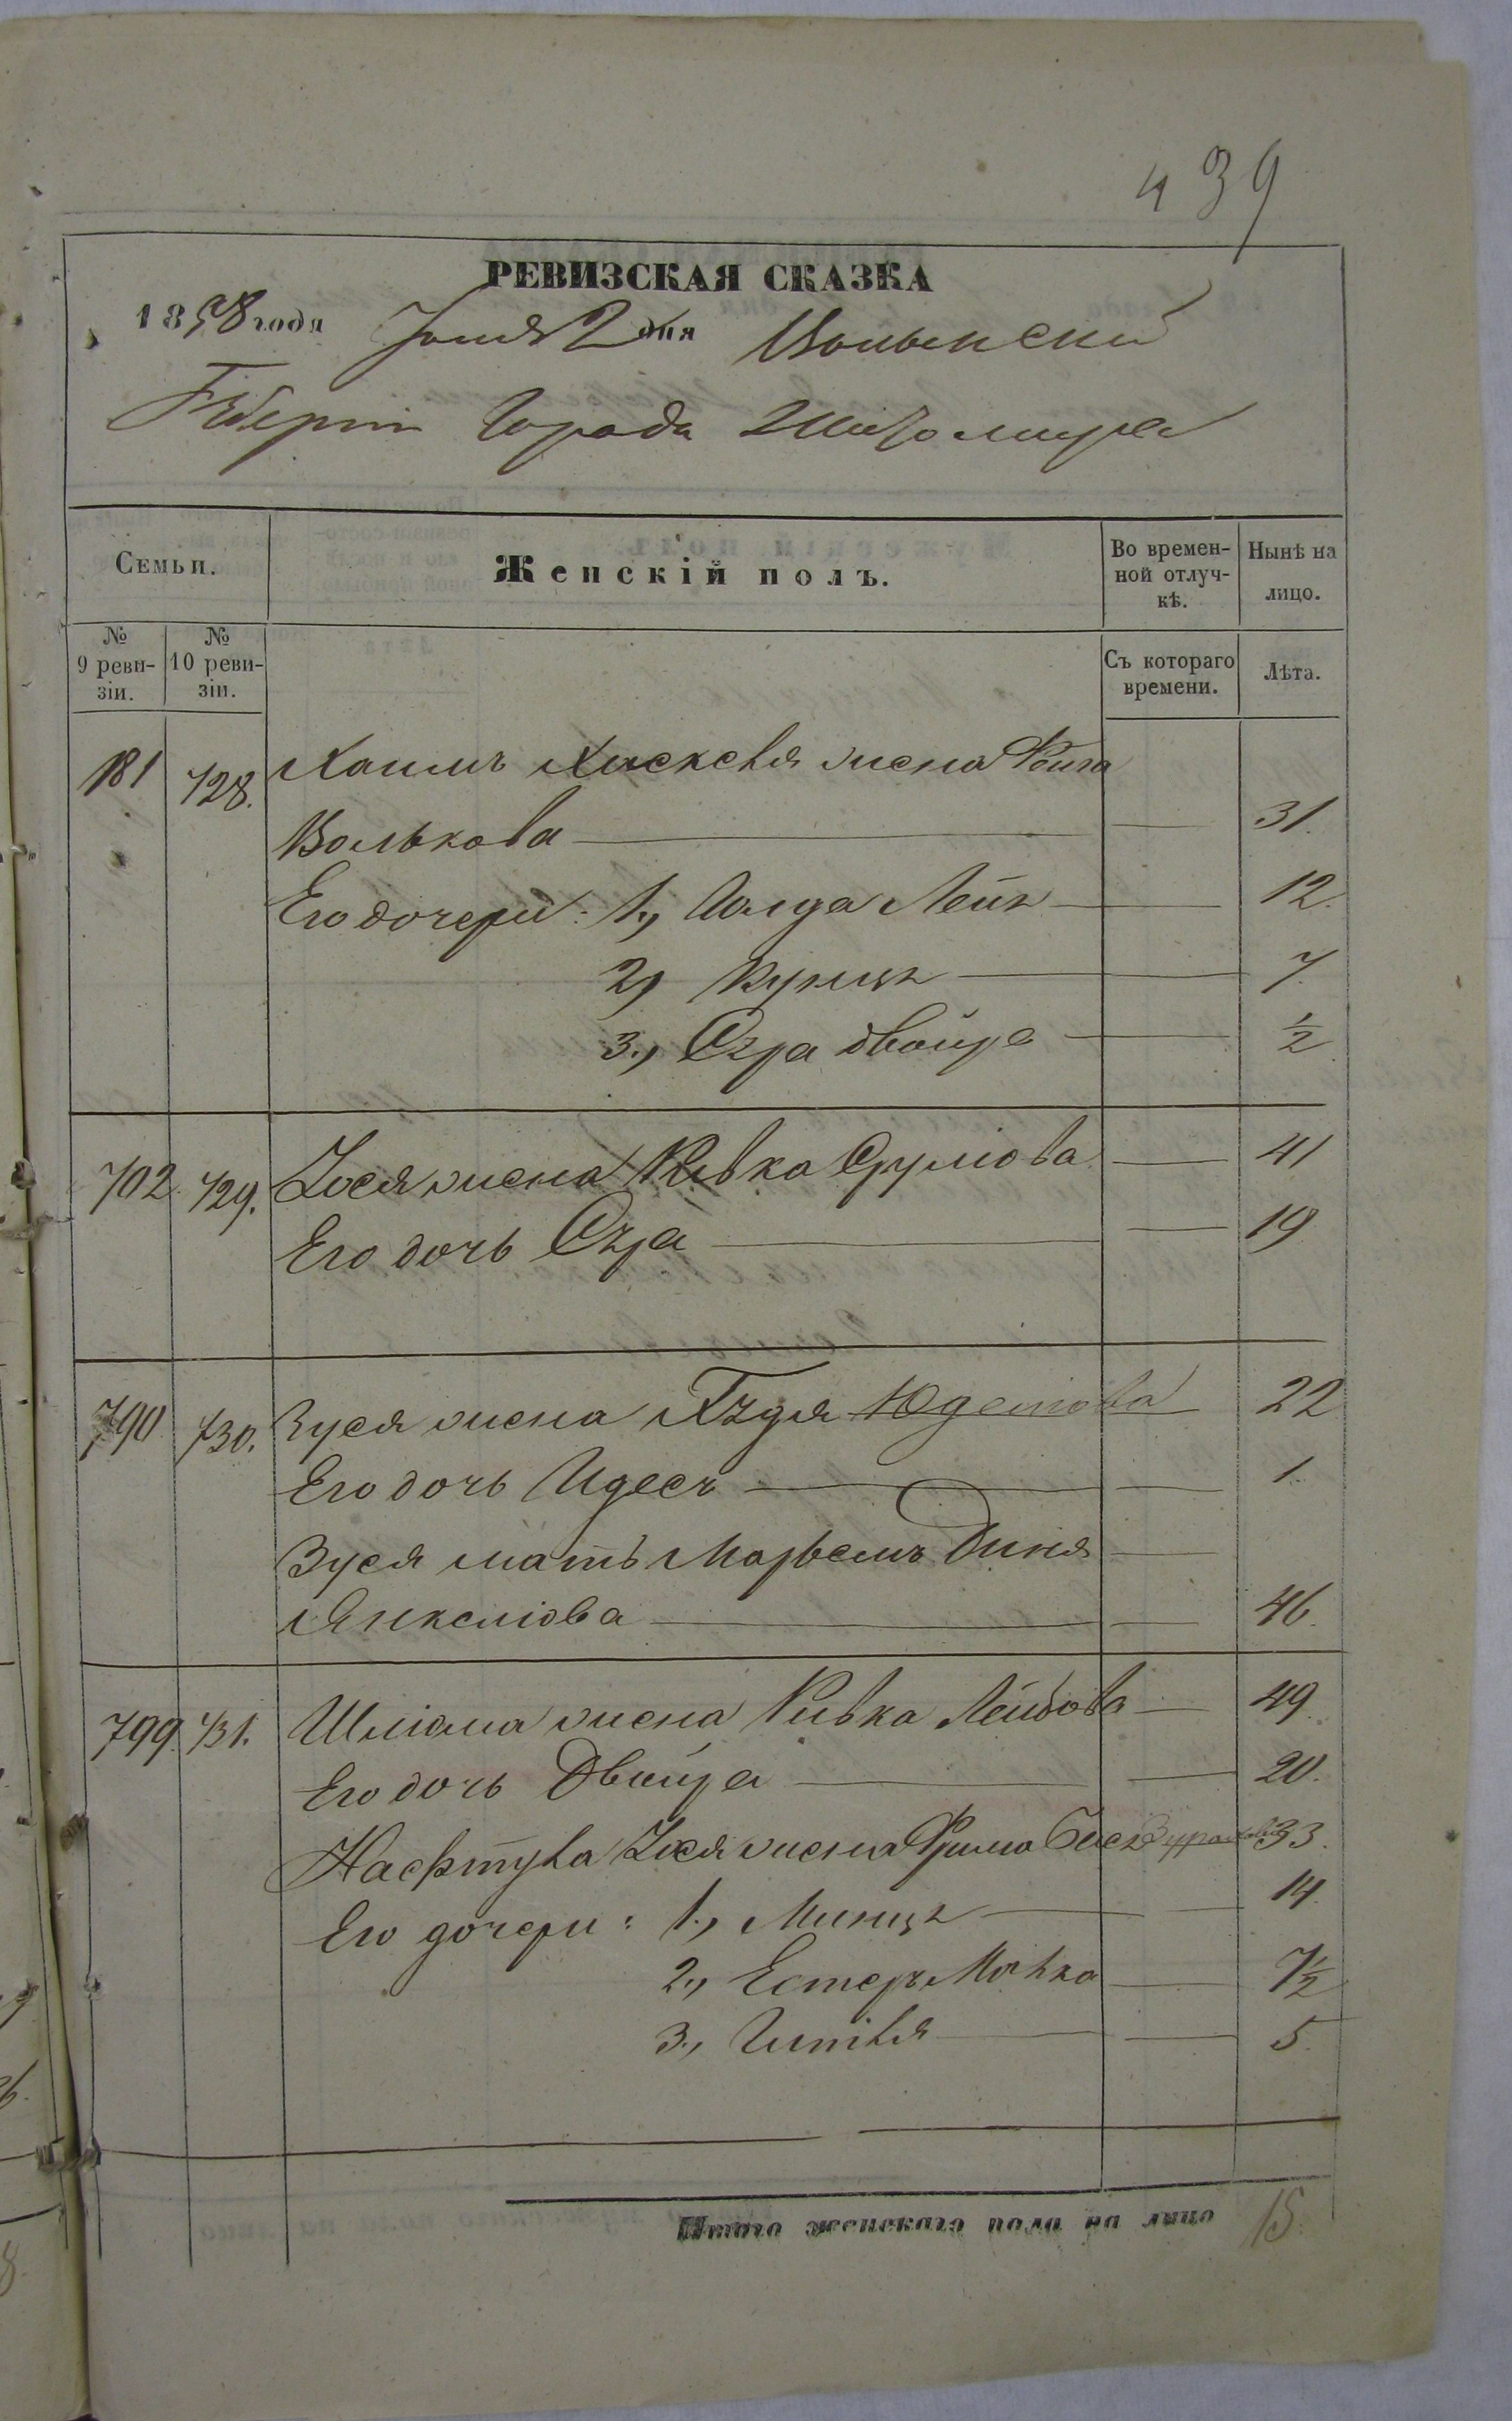 439
РЕВИЗСКАЯ СКАЗКА
1858 года Іюня 2 дня Волынской
Губерніи Города Житомира
Семьи.
Женскій полъ.
Во времен-
ной отлуч-
кѣ.
Нынѣ на
лицо.
№
9 реви-
зіи.
№
10 реви-
зіи.
Съ котораго
времени.
Лѣта.
181 728. Хаимъ жена
Волькова 31.
Его дочери: 1., Голда Лея 12.
2, 7.
3., Сура Двойра ½
702. 729. Іося жена Ривка Сруліова 41
Его дочь Сура 19
790 730. Зуся жена 22
Его дочь Идесъ 1.
Зуся мать Марьемъ Диня
Янкеліова 46.
799. 731. Шліома жена Ривка Лейбова 49.
Его дочь Двойра 20.
Нафтула Іося жена Фрима Бася 33.
Его дочери: 1., Минца 14.
2., Естеръ Малка 7½
3., Гитля 5.
Итого женскаго пола на лицо 15